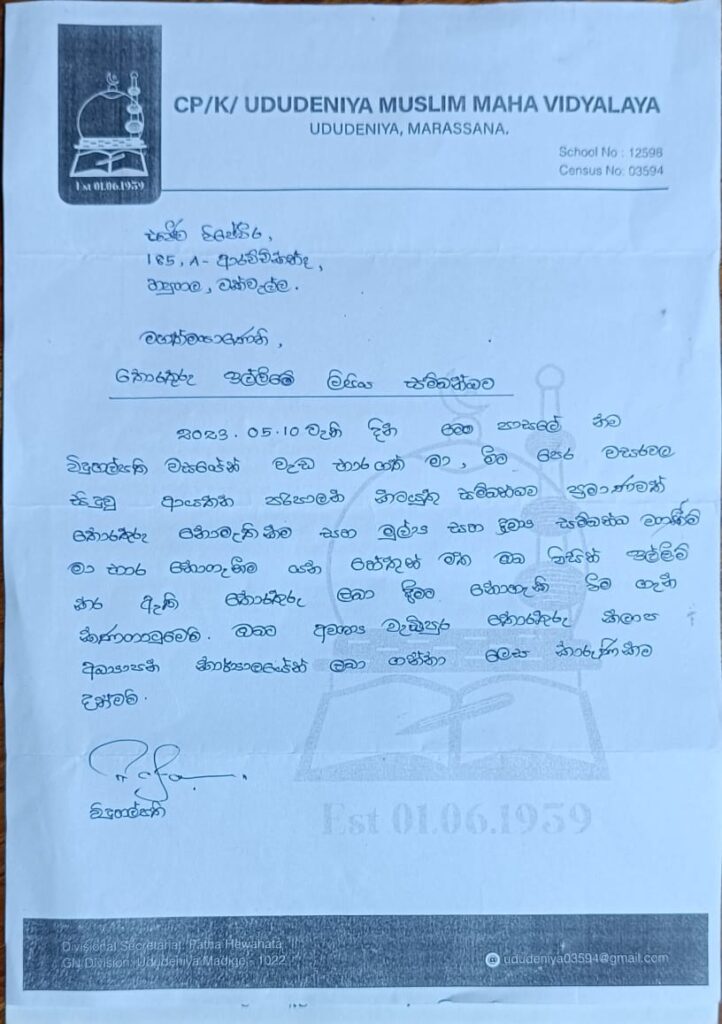 CP/K/ UDUDENIYA MUSLIM MAHA VIDYALAYA
UDUDENIYA, MARASSANA.
School No : 12598
Census No: 03594
Est 01.06.1959
165, A - ආරච්චිකන්ද,
හපුගල, වක්වැල්ල.
මහත්මයාණෙනි,
තොරතුරු ඉල්ලීමේ ලිපිය සම්බන්ධව
2023.05.10 වැනි දින මෙම පාසලේ නව
විදුහල්පති වශයෙන් වැඩ භාරගත් මා, මීට පෙර වසරවල
සිදුවූ ආයතන පරිපාලන කටයුතු සම්බන්ධව ප්‍රමාණවත්
තොරතුරු නොමැතිකම සහ මූල්‍ය සහ ද්‍රව්‍ය සම්බන්ධ
මා භාර නොගැනීම යන හේතුන් මත ඔබ විසින් ඉල්ලීම්
කර ඇති තොරතුරු ලබා දීමට නොහැකි වීම ගැන
කණගාටුවෙමි. ඔබට අවශ්‍ය වැඩිපුර තොරතුරු කලාප
අධ්‍යාපන කාර්යාලයෙන් ලබා ගන්නා ලෙස කාරුණිකව
දන්වමි.
විදුහල්පති
Est 01.06.1959
Divisional Secretariat: Patha Hewahata
GN Division: Ududeniya Madige - 1022
ududeniya03594@gmail.com